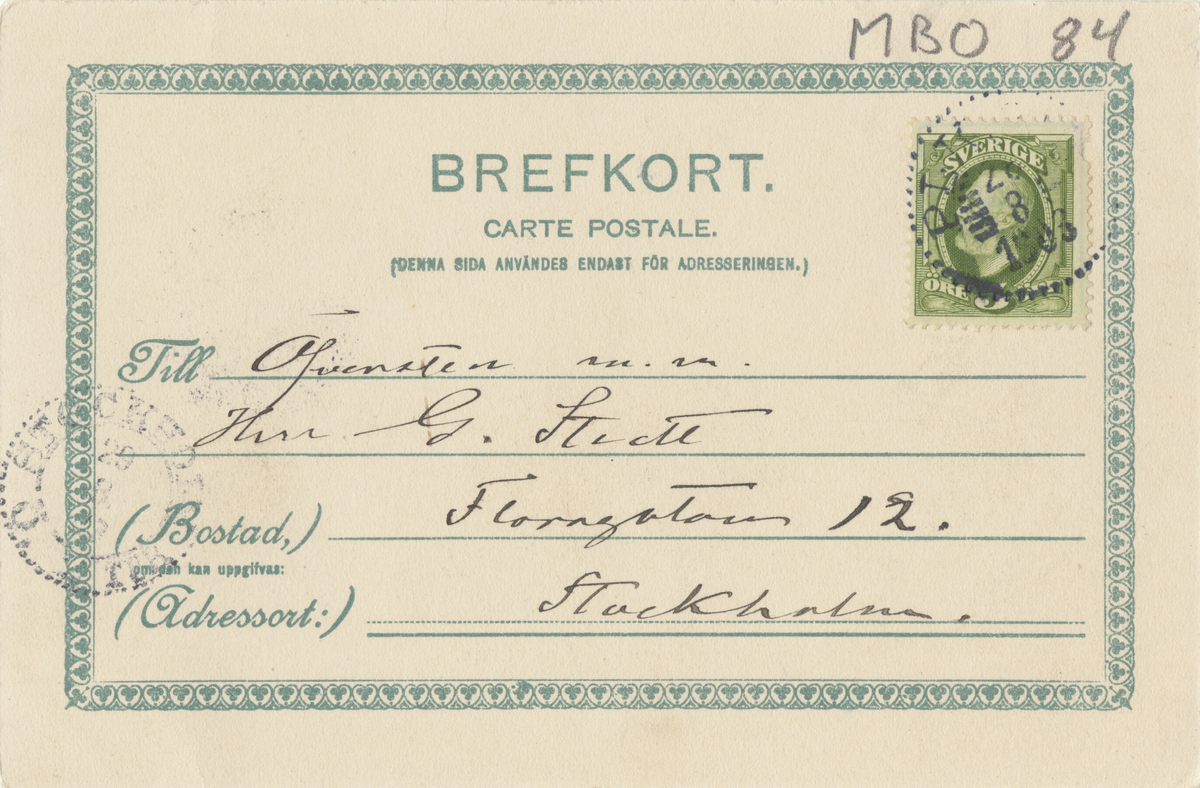 MBO 84
BREFKORT.
CARTE POSTALE.
(DENNA SIDA ANVÄNDES ENDAST FÖR ADRESSERINGEN.)
SVERIGE
ÖRE 5
8
Till Öfversten m. m.
Herr G. Stedt
(Bostad,) Floragatan 12.
om den kan uppgifvas:
(Adressort:) Stockholm.
STOCKHOLM
29